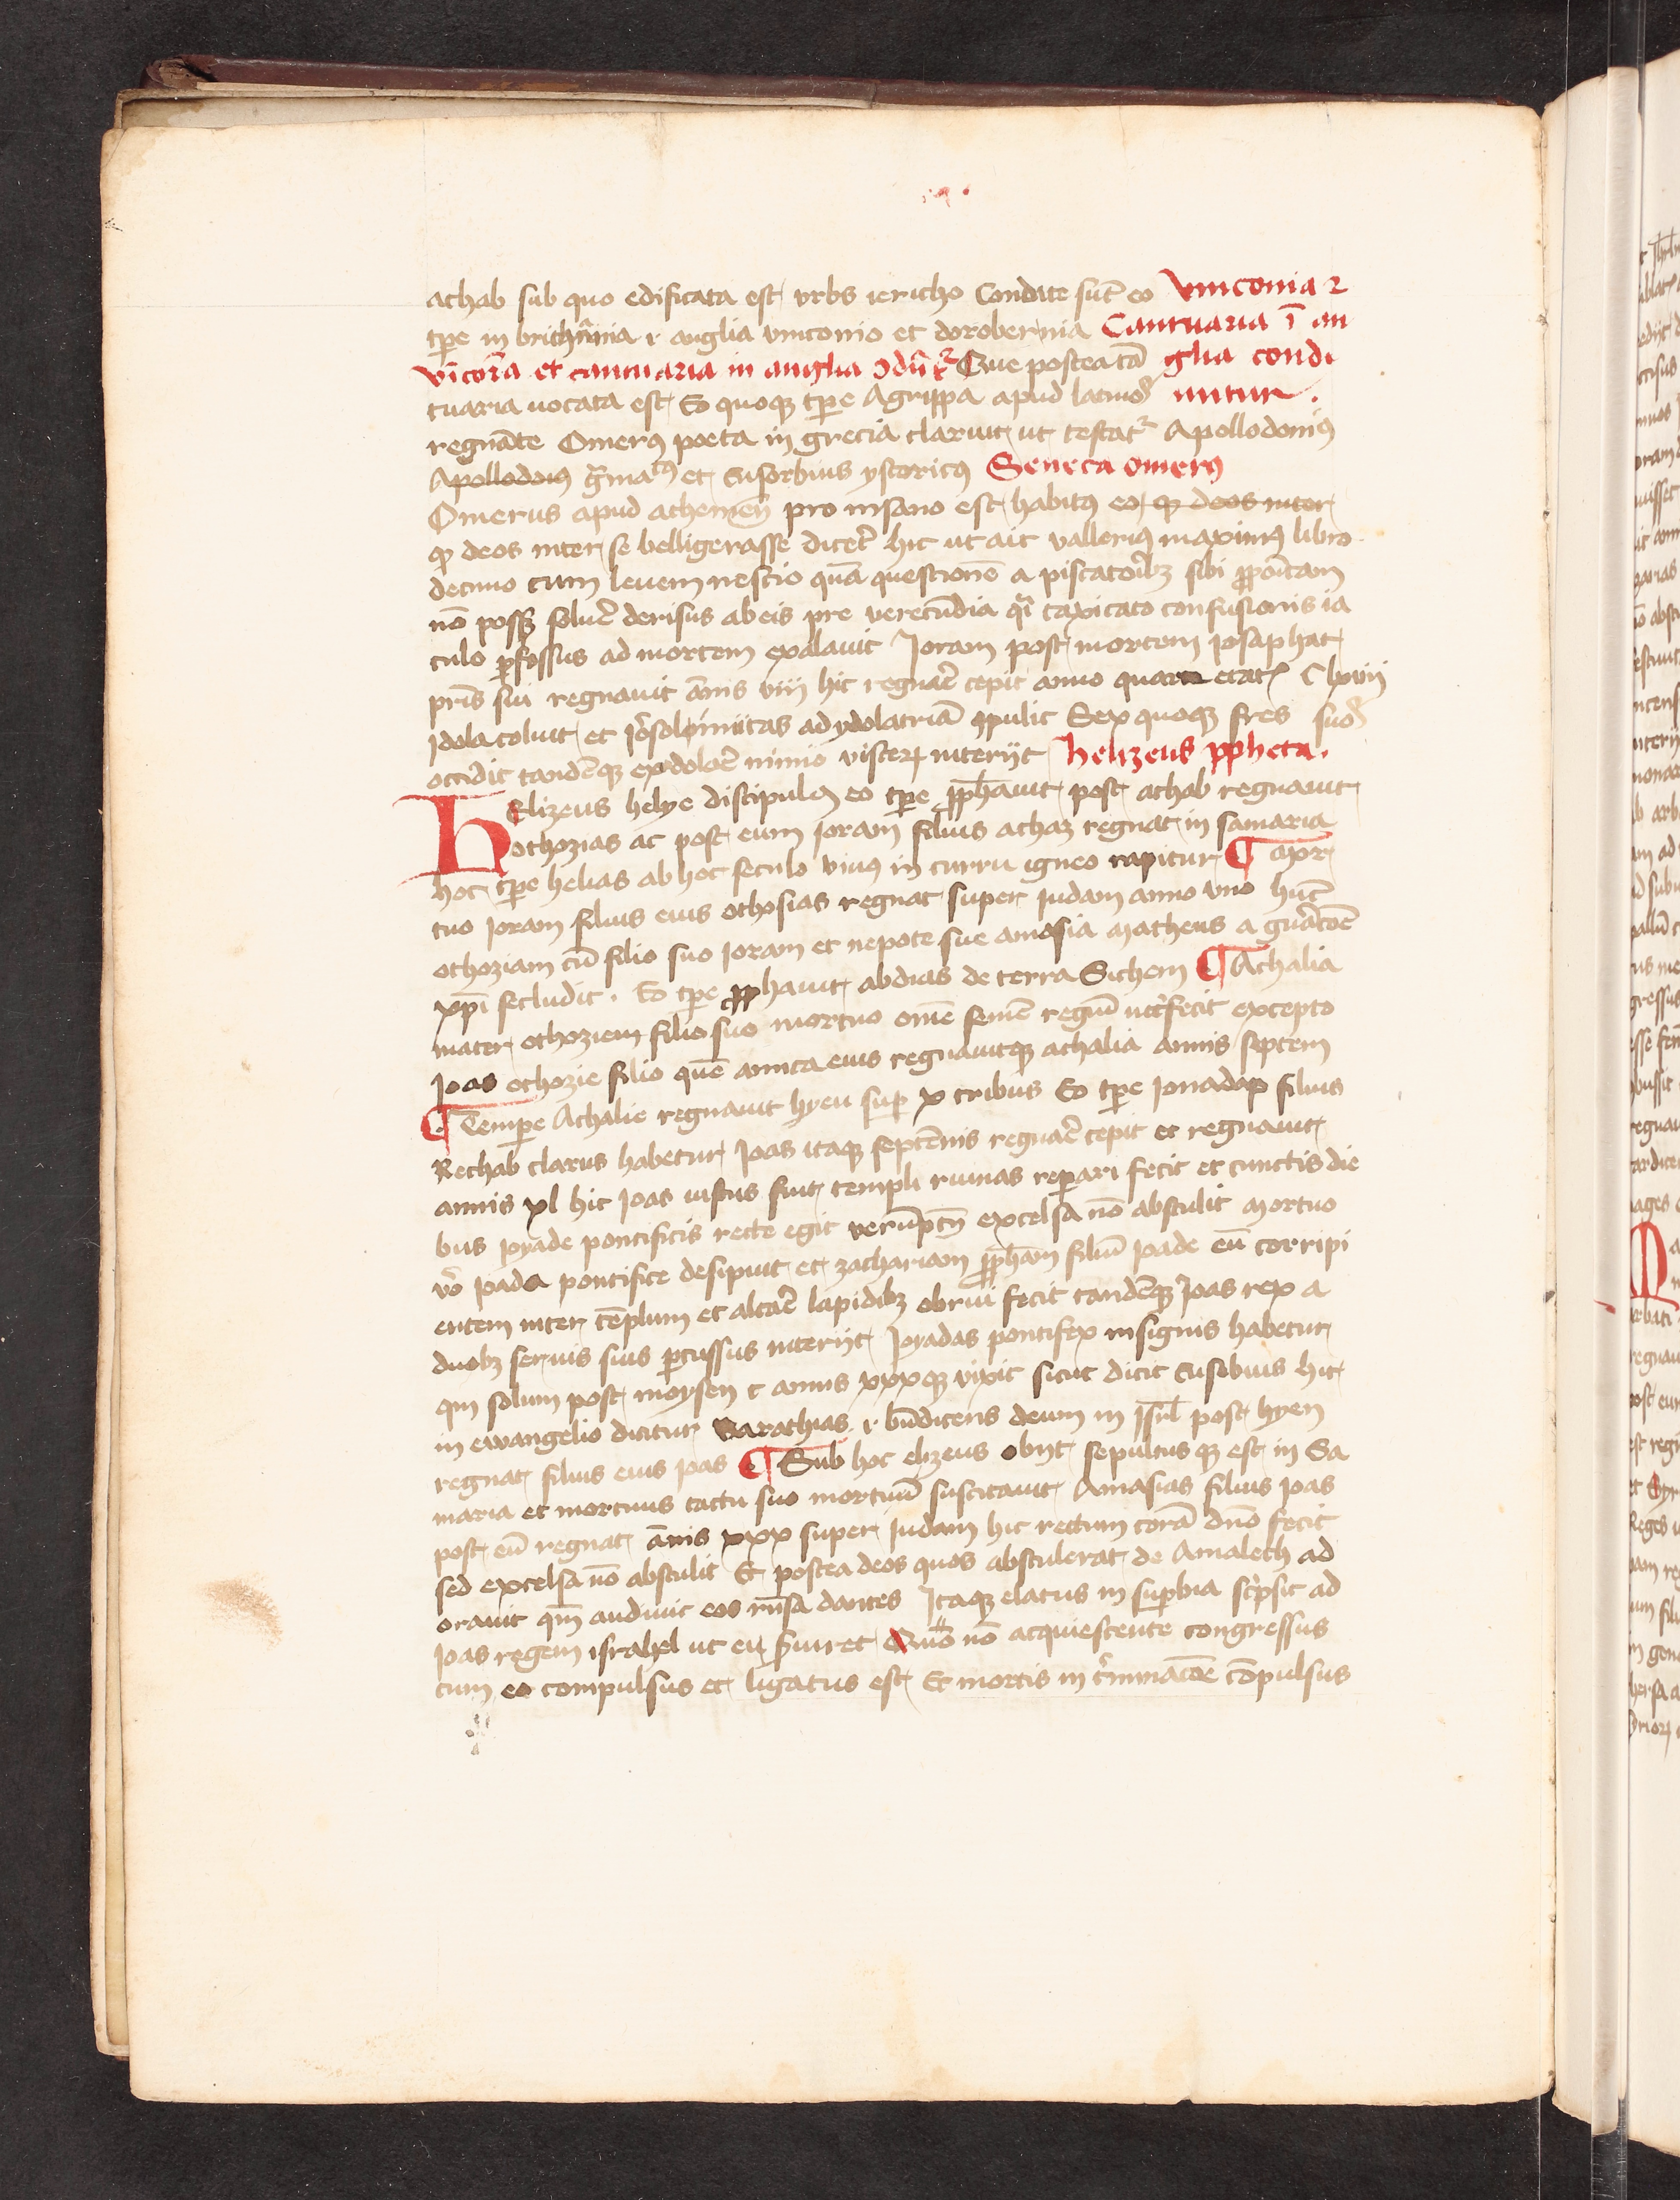 achab sub quo edificata est vrbs iericho Condite sūt eo vinconia 2
tpe in brithānia r anglia vinconio et dorobernia Cantuaria ī an
vīcoīa et cantuaria in anglia Que postea cā glia condi
tuaria uocata est Eo quoqꝫ tpe Agrippa apud latinoꝝ untur.
regnāte Omerꝰ poeta in grecia claruit ut testat᷑ Apollodoniꝰ
Apollodoniꝰ gᷓmatᶜꝰ et Eusorbius ystoricꝰ Seneca omerꝰ
Omerus apud athenien̄ pro insano est habitꝰ eo qꝫ deos inter
qꝫ deos inter se belligerasse dicer̄ hic ut ait valleriꝰ maximꝰ libro
decimo cum leuem nescio quā questionē a piscatoribꝫ sibi ꝓpoītam
nō possꝫ soluēr derisus ab eis pre verecūdia qᷓi taxicato confusionis ia
culo ꝑfossus ad mortem exalauit Joram post mortem Josaphat
pr̄is sui regnauit ānis viii hic regnar̄e cepit anno quarte etatꝭ Clxviij
Idola coluit et ihr̄osolimitas ad ydolatriā ꝯpulit Sex quoqꝫ fr̄es suoꝝ
occidit tandēqꝫ ex dolor̄e nimio visceꝝ interijt helizeus ꝓpheta.
HElizeus helye discipulꝰ eo tpe ꝓph̄auit post achab regnauit
othozias ac post eum Joram filius achaz regnat in samaria
hoc tpe helias ab hoc seculo viuꝰ in curru igneo rapitur ¶ Mor
tuo Joram filius eius othosias regnat super Judam anno vno hūc
othoziam cū filio suo Joram et nepote sue amasia Matheus a gn̄atōe
xp̄i secludit. Eo tpe ꝓphauit abdias de terra Sichem ¶ Athalia
mater othoziem filio suo mortuo om̄e semē regiū int̄fecit excepto
Joas othozie filio quē amica eius regnauitqꝫ athalia annis septem
¶ Tempe Athalie regnauit hyeu suꝑ x tribus Eo tpe Jonadap filius
Rechab clarus habetur Joas itaqꝫ septēnis regnar̄e cepit et regnauit
annis xl hic Joas iustus fuit templi ruinas repari fecit et cunctis die
bus Joyade pontificis recte egit verūptn̄ excelsa nō abstulit Mortuo
vō Joada pontifice desipuit et zachariam ꝓph̄am filiū Joade eū corripi
entem inter tēplum et altar̄e lapidibꝫ obrui fecit tandēqꝫ Joas rex a
duobꝫ seruis suis ꝑcussus interijt Joyadas pontifex insignis habetur
qm solum post moysen c annis xxxqꝫ vixit sicut dicit Eusebius hic
in ewangelio dicitur Barathias .i. bn̄dicens deum in Isrl̄ post hyeu
regnat filius eius Joas ¶ Sub hoc elizeus obijt sepultus qꝫ est in Sa
maria et mortuus tactu suo mortuū suscitauit Amasias filius Joas
post eū regnat ānis xxx super Judam hic rectum corā dn̄o fecit
sed excelsa nō abstulit Et postea deos quos abstulerat de Amalech ad
orauit qm̄ audiuit eos rn̄sa dantes Itaqꝫ elatus in suꝑbia sc̄psit ad
Joas regem israhel ut ei s̄uiret Quo nō acquiescente congressus
cum eo compulsus et ligatus est Et mortis in cōminacōe cōpulsus